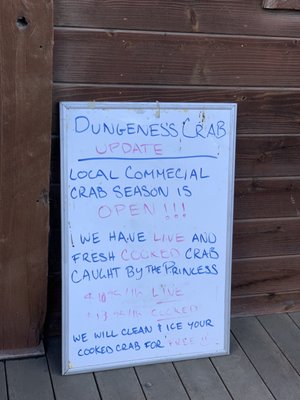 DUNGENESS CRAB
UPDATE
LOCAL COMMECIAL
CRAB SEASON IS
OPEN!!!
WE HAVE LIVE AND
FRESH COOKED CRAB
CAUGHT BY THE PRINCESS
LIVE
COOKED
WE WILL CLEAN & ICE YOUR
COOKED CRAB FOR FREE!!